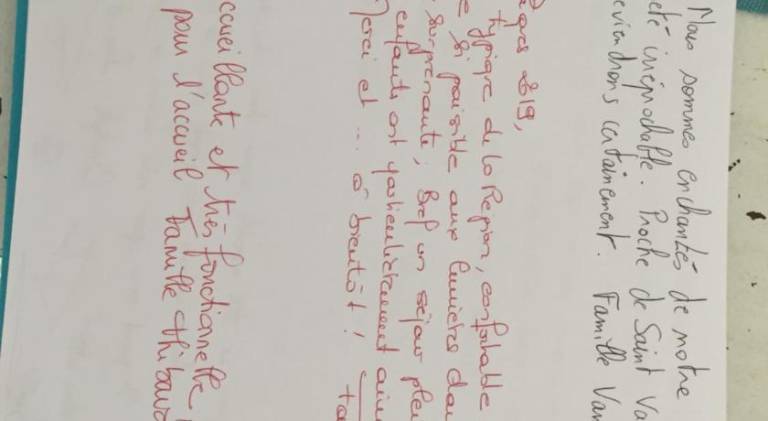 Nous sommes enchantés de notre
été irréprochable. Proche de Saint Va
eviendrons certainement. Famille Van
Pâques 2019,
typique de la Region, confortable
si paisible aux lumières dou
surprenante, Bref un séjour plei
enfants ont particulièrement aimé
Merci et ... à bientôt !
ccueillante et très fonctionnelle
pour l'accueil Famille Thibaud